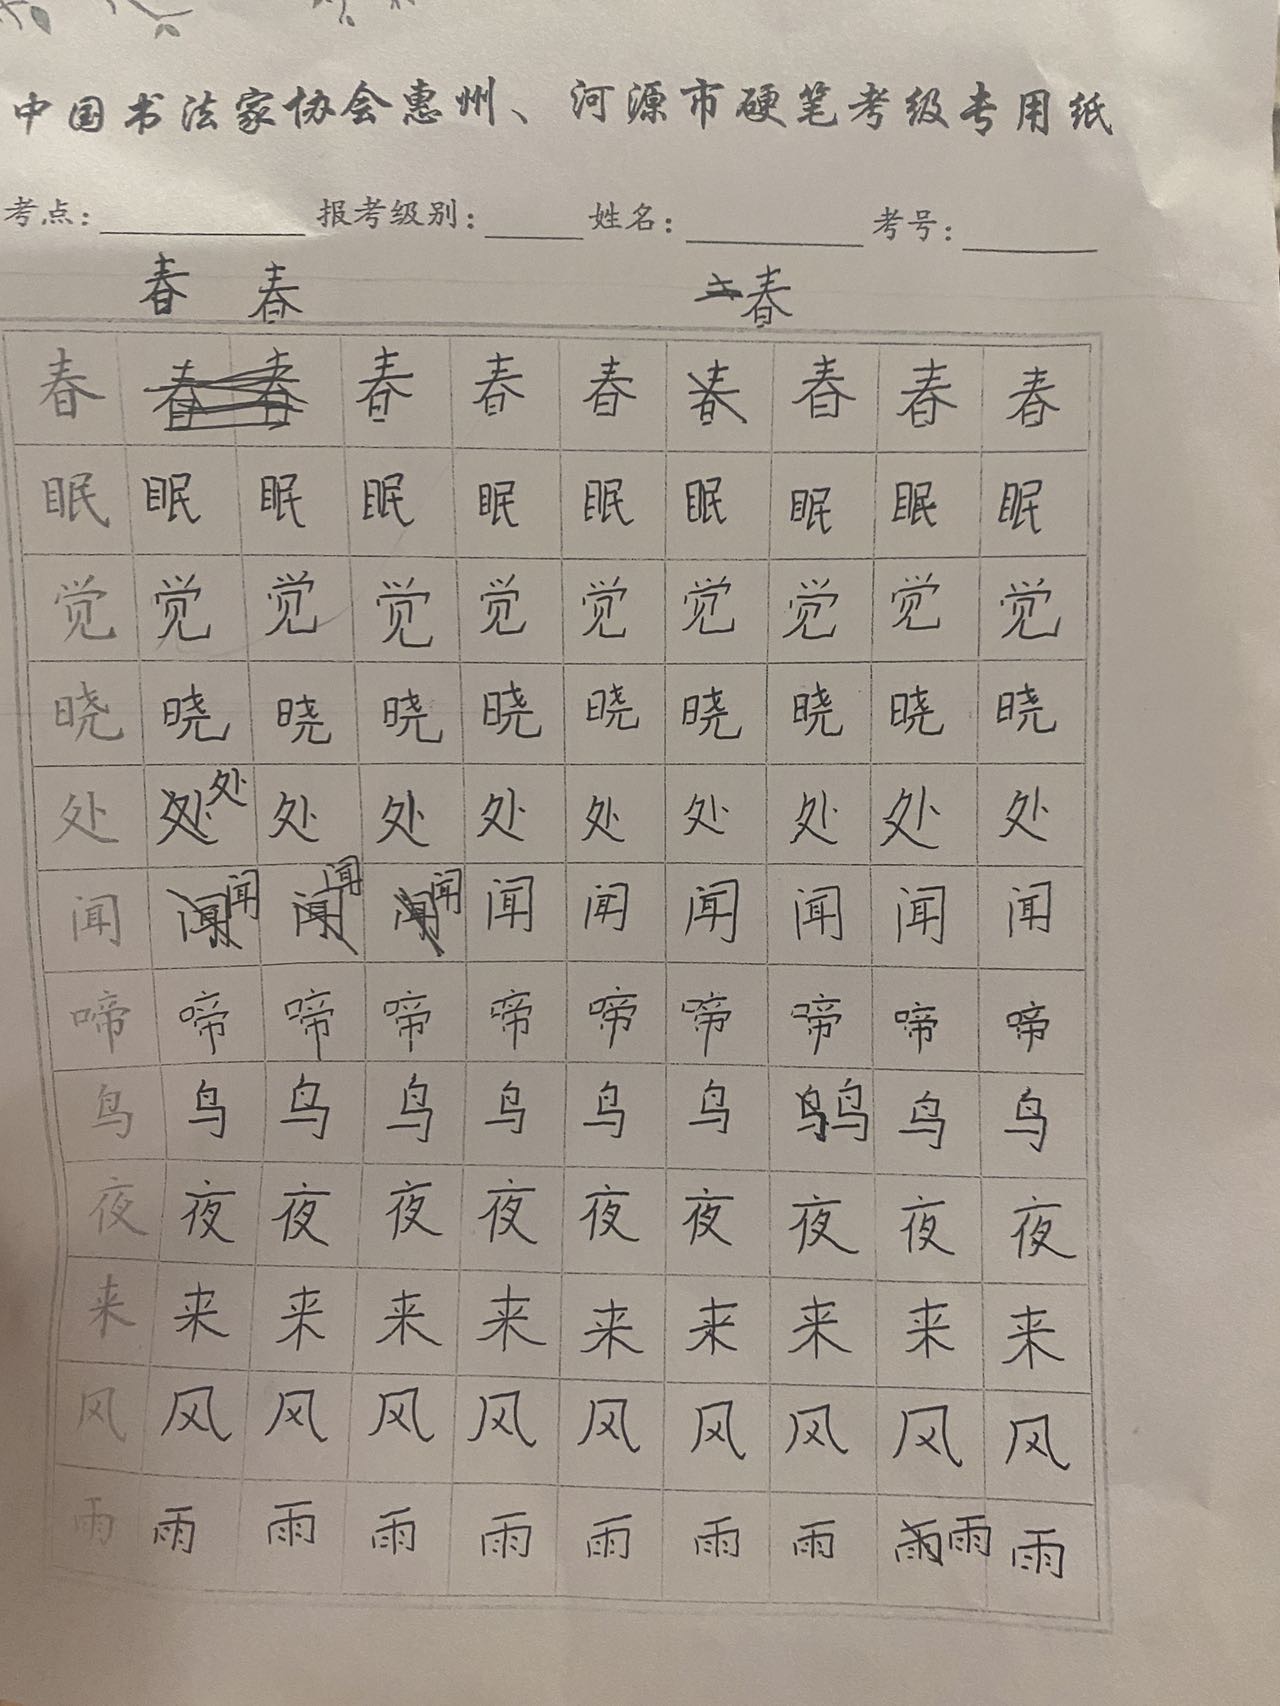 中国书法家协会惠州、河源市硬笔考级专用纸
考点: 报考级别: 姓名: 考号:
春 春 春
春 春 春 春 春 春 春 春 春 春
眠 眠 眠 眠 眠 眠 眠 眠 眠 眠
觉 觉 觉 觉 觉 觉 觉 觉 觉 觉
晓 晓 晓 晓 晓 晓 晓 晓 晓 晓
处 处 处 处 处 处 处 处 处 处 处
闻 闻 闻 闻 闻 闻 闻 闻 闻 闻 闻 闻 闻
啼 啼 啼 啼 啼 啼 啼 啼 啼 啼
鸟 鸟 鸟 鸟 鸟 鸟 鸟 鸟 鸟 鸟 鸟
夜 夜 夜 夜 夜 夜 夜 夜 夜 夜
来 来 来 来 来 来 来 来 来 来
风 风 风 风 风 风 风 风 风 风
雨 雨 雨 雨 雨 雨 雨 雨 雨 雨 雨